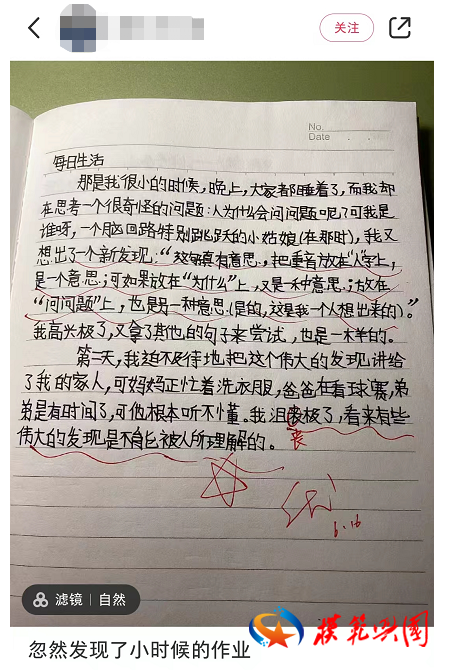 关注
No.
Date
每日生活
那是我很小的时候，晚上，大家都睡着了，而我却
在思考一个很奇怪的问题：人为什么会问问题呢？可我是
谁呀，一个脑回路特别跳跃的小姑娘(在那时)，我又
想出了一个新发现：“这句真有意思，把重音放在“人”字上，
是一个意思；可如果放在“为什么”上，又是一种意思；放在
“问问题”上，也是另一种意思(是的，这是我一个人想出来的)。”
我高兴极了，又拿了其他的句子来尝试，也是一样的。
第二天，我迫不及待地把这个伟大的发现讲给
了我的家人，可妈妈正忙着洗衣服，爸爸在看球赛，弟
弟是有时间了，可他根本听不懂。我沮丧极了，看来有些
丧
伟大的发现是不能被人所理解的。
优
6.16
滤镜｜自然
模范兴国
忽然发现了小时候的作业